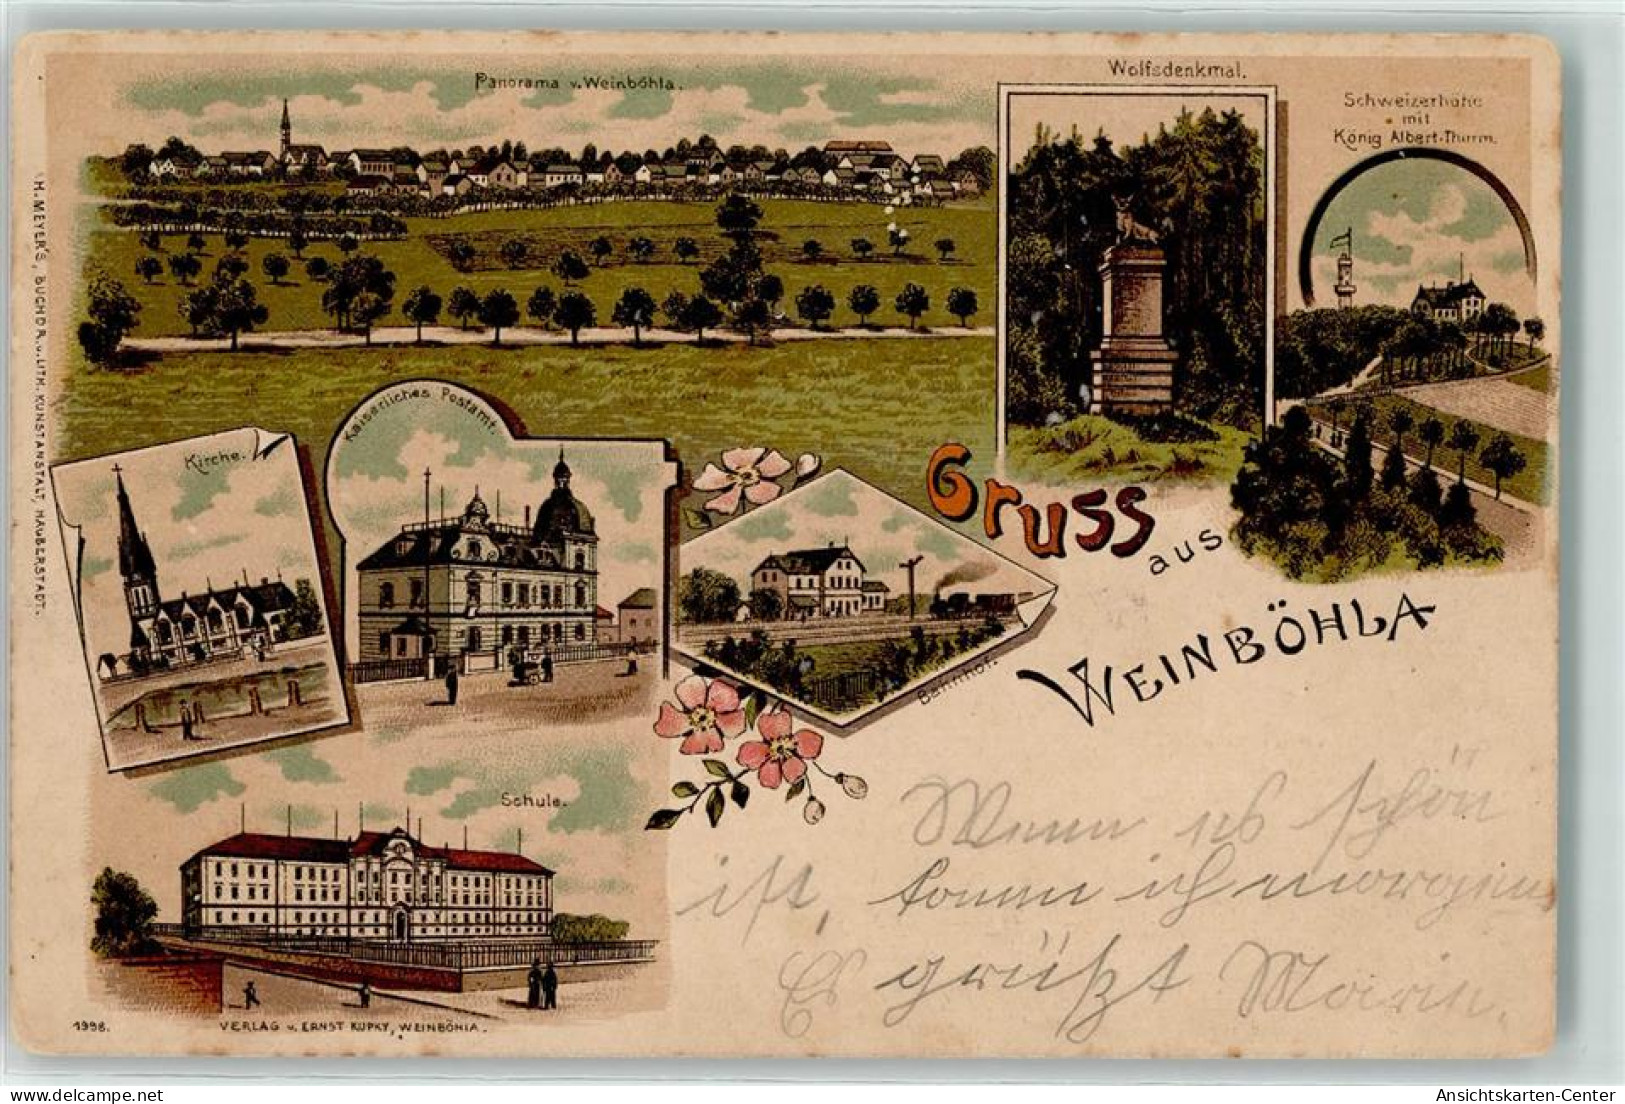 Panorama v. Weinböhla.
Wolfsdenkmal.
Schweizerhöhe
mit
König Albert-Thurm.
H. MEYER'S, BUCHDR. u. LITH. KUNSTANSTALT, HALBERSTADT.
Kirche.
Kaiserliches Postamt.
Gruss
aus
WEINBÖHLA
Bahnhof.
Schule.
Wenn es schön
ist, komm ich morgen
Es grüßt
1998.
VERLAG v. ERNST KUPKY, WEINBÖHLA.
delcampe.net
Ansichtskarten-Center